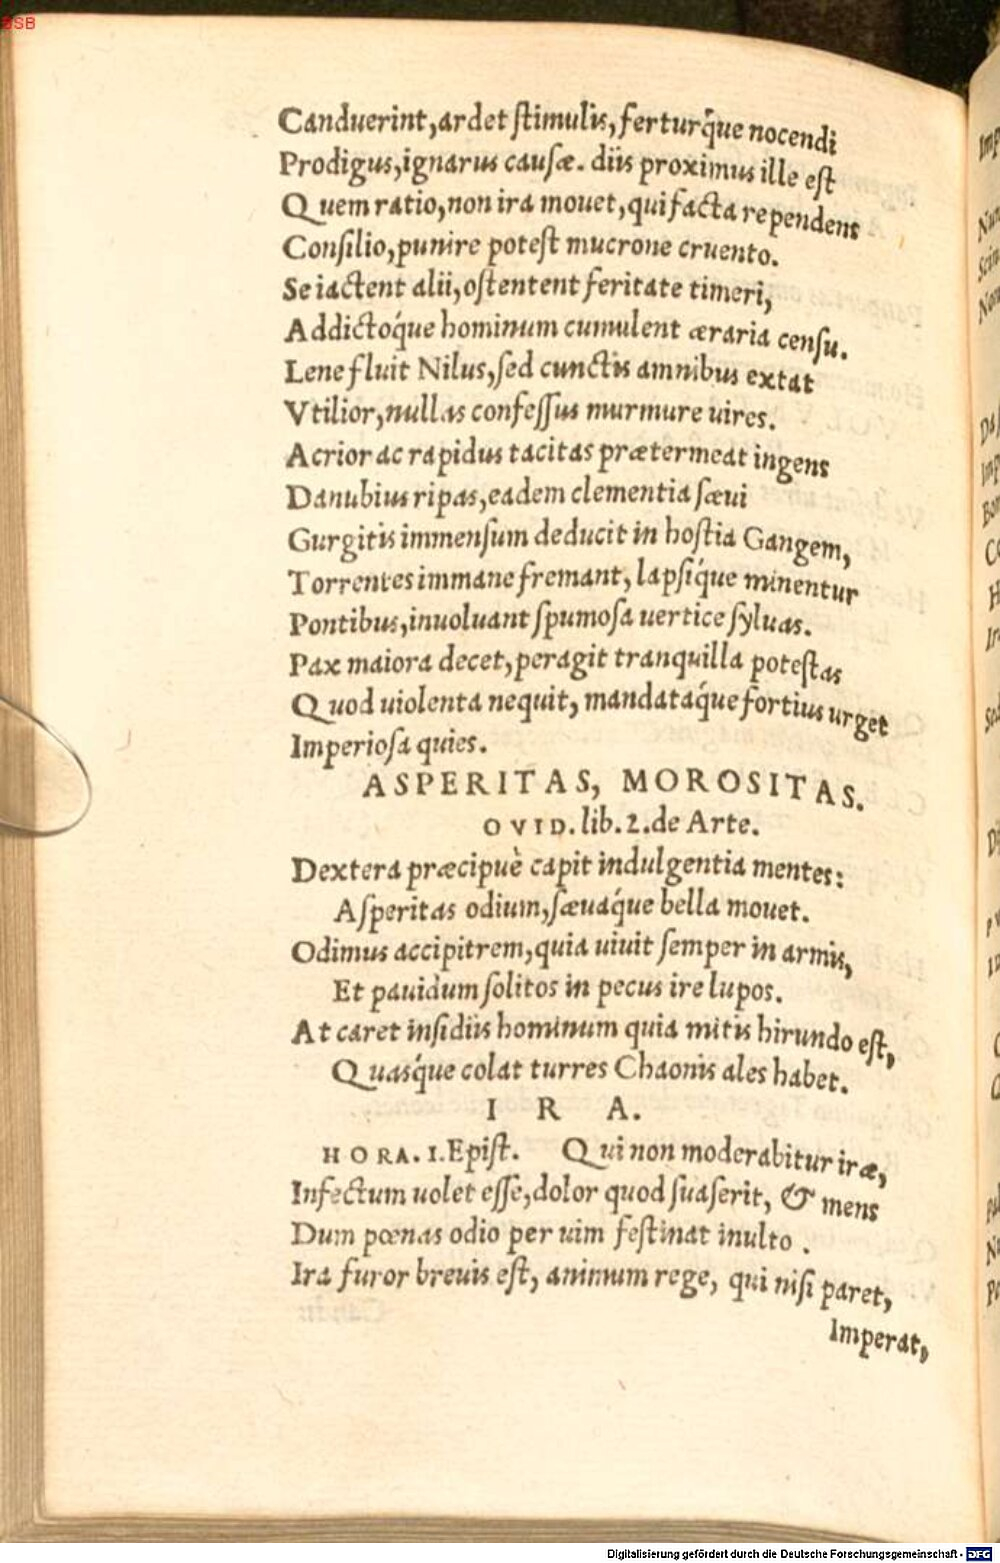 BSB
Canduerint, ardet stimulis, ferturq́ue nocendi
Prodigus, ignarus causæ. diis proximus ille est
Quem ratio, non ira mouet, qui facta rependens
Consilio, punire potest mucrone cruento.
Se iactent alii, ostentent feritate timeri,
Addictoq́ue hominum cumulent æraria censu.
Lene fluit Nilus, sed cunctis amnibus extat
Vtilior, nullas confessus murmure uires.
Acrior ac rapidus tacitas prætermeat ingens
Danubius ripas, eadem clementia sæui
Gurgitis immensum deducit in hostia Gangem,
Torrentes immane fremant, lapsiq́ue minentur
Pontibus, inuoluant spumosa uertice syluas.
Pax maiora decet, peragit tranquilla potestas
Quod uiolenta nequit, mandataq́ue fortius urget
Imperiosa quies.
ASPERITAS, MOROSITAS.
OVID. lib. 2. de Arte.
Dextera præcipuè capit indulgentia mentes:
Asperitas odium, sæuaq́ue bella mouet.
Odimus accipitrem, quia uiuit semper in armis,
Et pauidum solitos in pecus ire lupos.
At caret insidiis hominum quia mitis hirundo est,
Quasq́ue colat turres Chaonis ales habet.
I R A.
HORA. 1. Epist. Qui non moderabitur iræ,
Infectum uolet esse, dolor quod suaserit, & mens
Dum pœnas odio per uim festinat inulto.
Ira furor breuis est, animum rege, qui nisi paret,
Imperat,
Digitalisierung gefördert durch die Deutsche Forschungsgemeinschaft - DFG